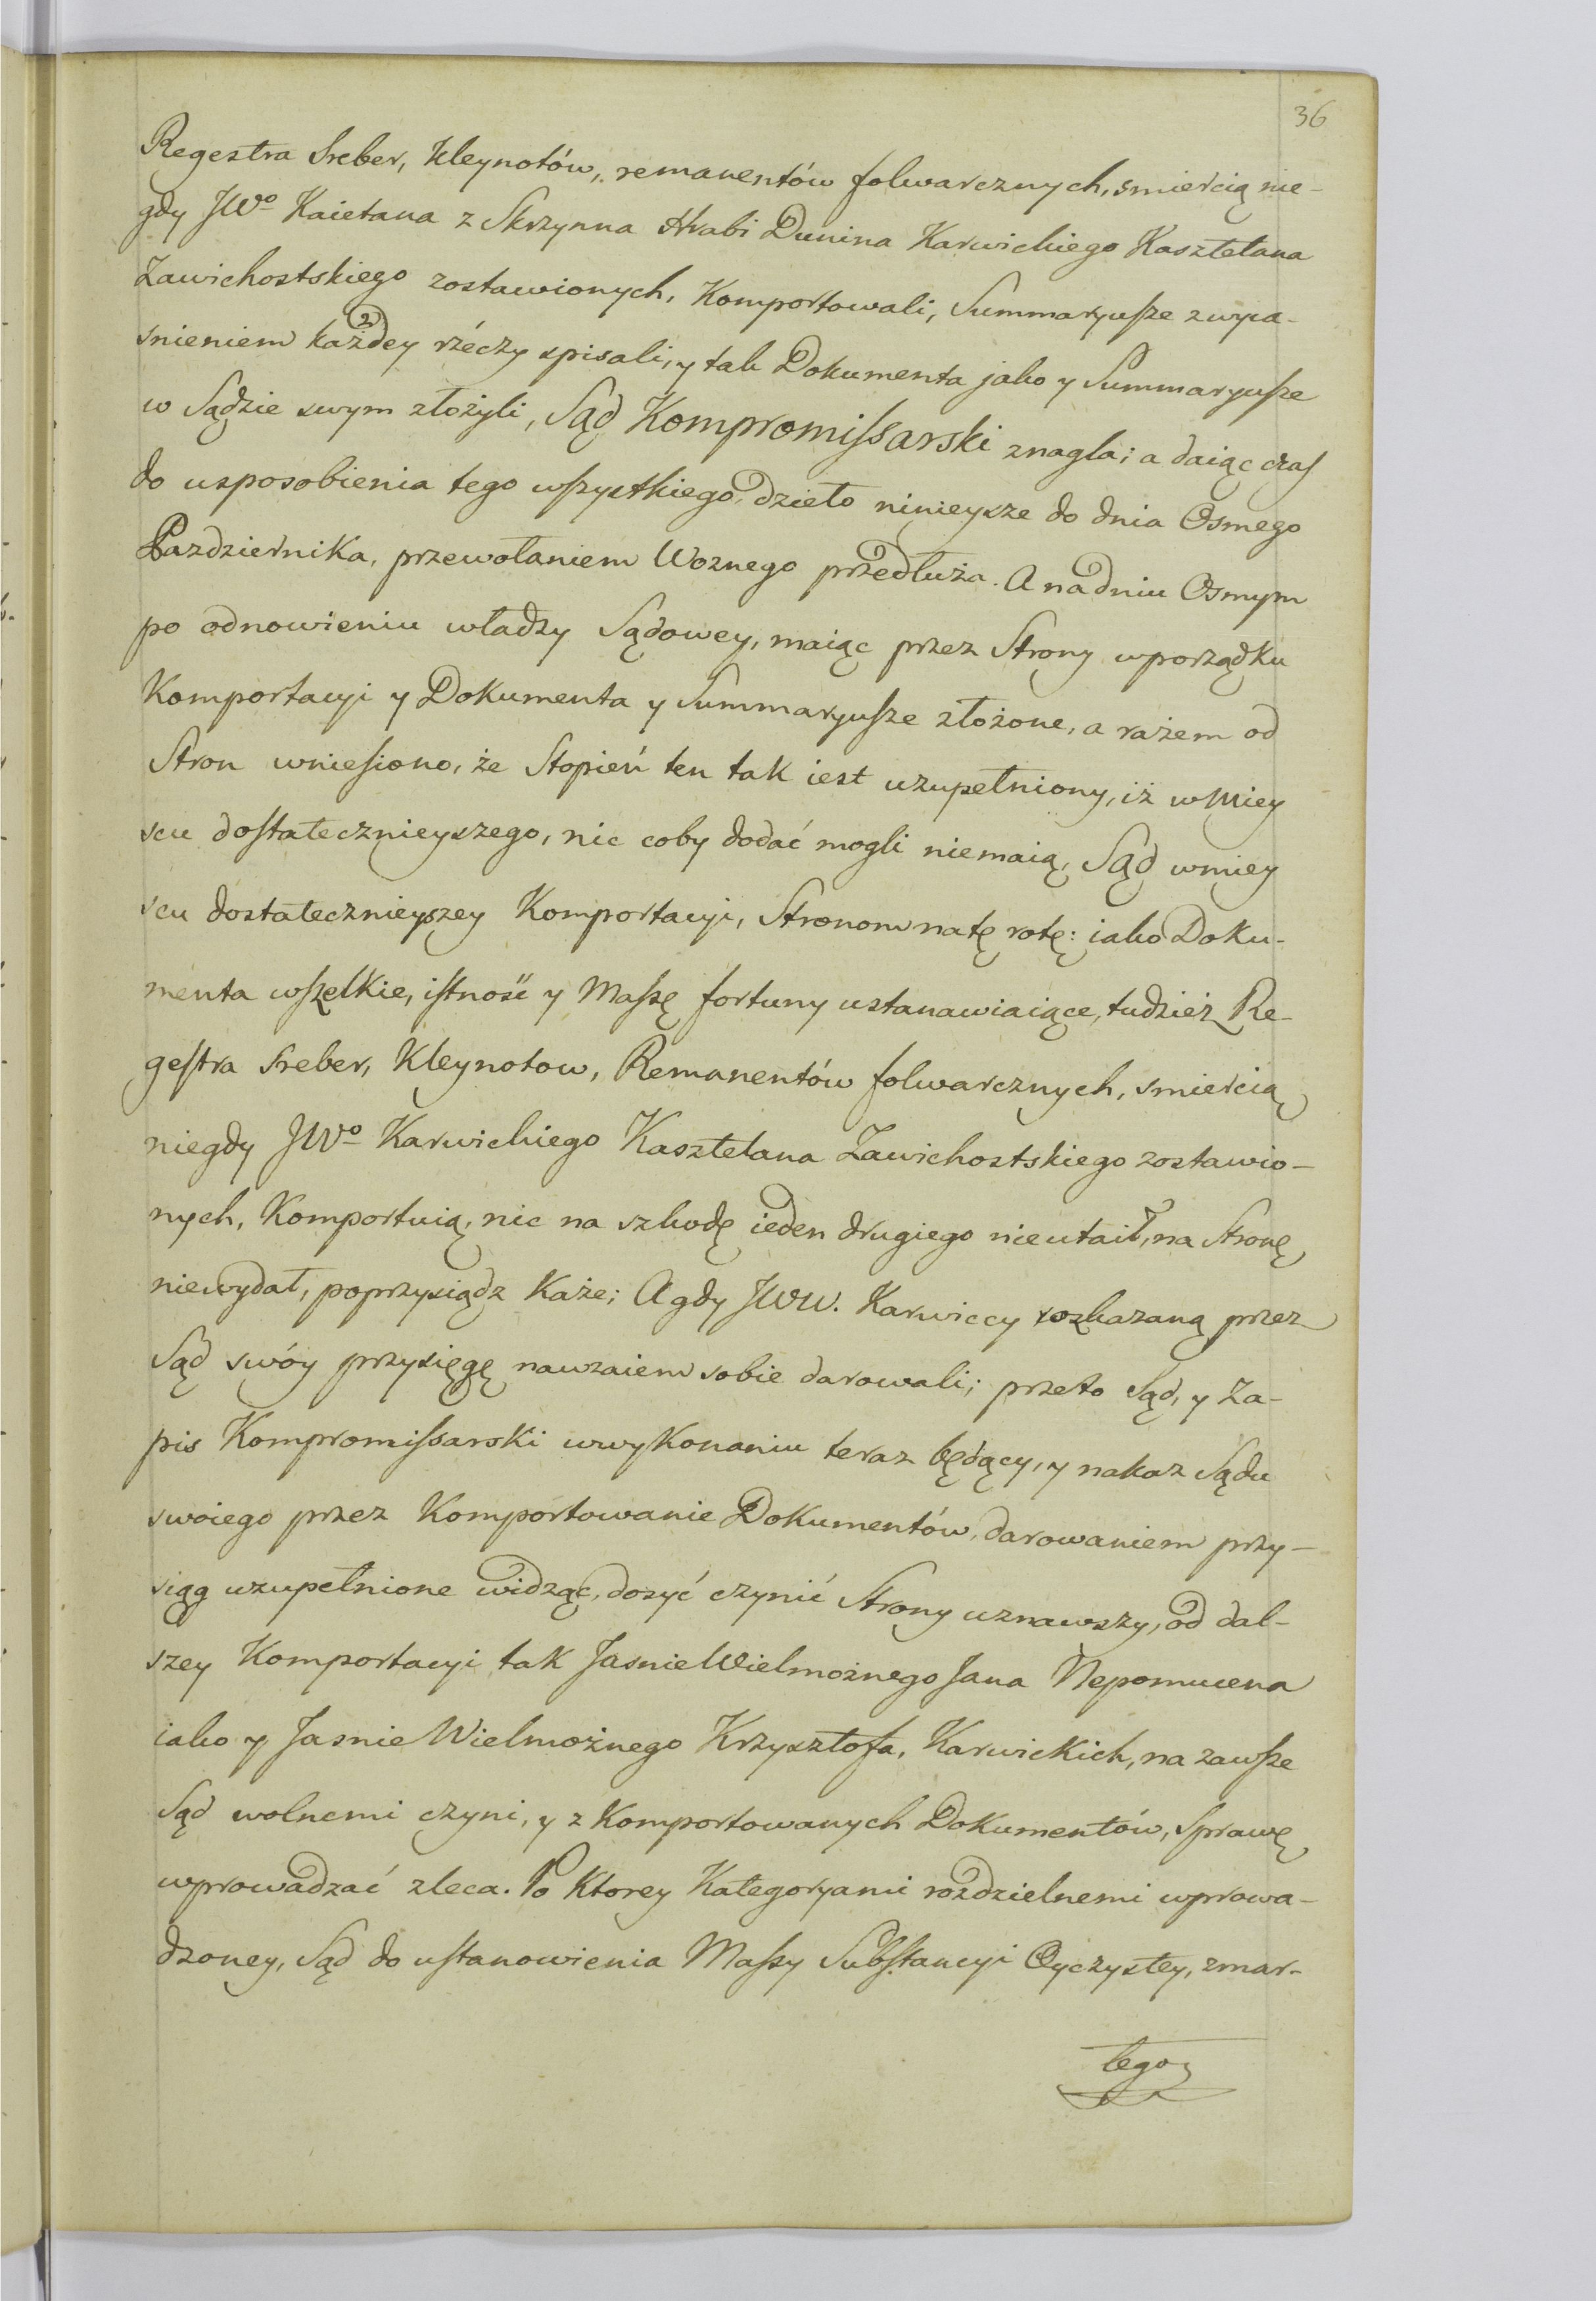 36
Regestra Sreber, Kleynotów, remanentów folwarcznych, smiercią nie-
gdy JWº Kaietana z Skrzynna Hrabi Dunina Karwickiego Kasztelana
Zawichostskiego zostawionych, Komportowali, Summaryusze z wyia-
snieniem każdey rzéczy spisali, y tak Dokumenta jako y Summaryusze
w Sądzie swym złożyli, Sąd Kompromissarski znagla; a daiąc czas
do usposobienia tego wszystkiego, dzieło ninieysze do dnia Osmego
Pazdziernika, przewołaniem Woznego przedłuża. A na dniu Osmym
po odnowieniu władzy Sądowey, maiąc przez Strony w porządku
Komportacyi y Dokumenta y Summaryusze złożone, a razem od
Stron wniesiono, że Stopień ten tak iest uzupełniony, iż w miey
scu dostatecznieyszego, nic coby dodać mogli niemaią, Sąd w miey
scu dostatecznieyszey Komportacyi, Stronom na tę rotę: iako Doku-
menta wszelkie, istność y Massę fortuny ustanawiaiące, tudzież Re-
gestra Sreber, Kleynotow, Remanentów folwarcznych, smiercią
niegdy JWº Karwickiego Kasztelana Zawichostskiego zostawio-
nych, Komportuią, nic na szkodę ieden drugiego nieutaił, na Stronę
niewydał, poprzysiądz Każe; A gdy JWW. Karwiccy rozkazaną przez
Sąd swóy przysięgę nawzaiem sobie darowali; przeto Sąd, y Za-
pis Kompromissarski w wykonaniu teraz będący, y nakaz Sądu
swoiego przez Komportowanie Dokumentów, darowaniem przy-
siąg uzupełnione widząc, dosyć czynić Strony uznawszy, od dal-
szey Komportacyi tak Jasnie Wielmożnego Jana Nepomucena
iako y Jasnie Wielmożnego Krzysztofa, Karwickich, na zawsze
Sąd wolnemi czyni, y z Komportowanych Dokumentów, Sprawę
wprowadzać zleca. Po Ktorey Kategoryami rozdzielnemi wprowa-
dzoney, Sąd do ustanowienia Massy Substancyi Oyczystey, zmar-
łego